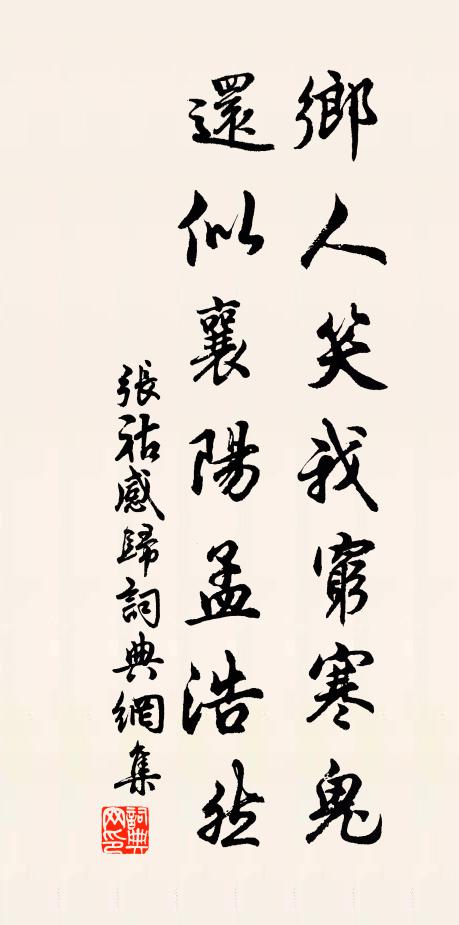 鄉人笑我窮寒鬼
還似襄陽孟浩然
張祜感歸詞典網集
詞典網印